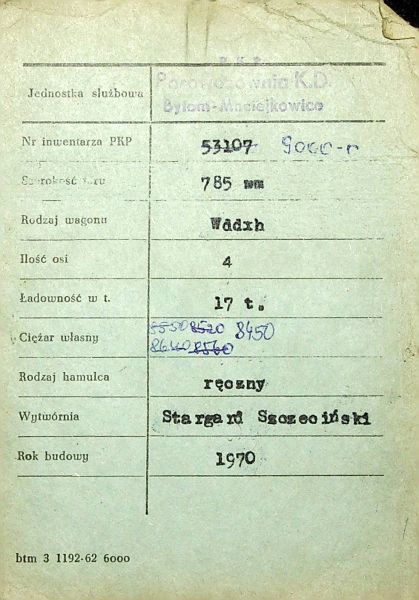 P.K.P.
Jednostka służbowa Parowozownia K.D.
Bytom-Maciejkowice
Nr inwentarza PKP 53107
Szerokość toru 785 mm
Rodzaj wagonu Wddxh
Ilość osi 4
Ładowność w t. 17 t.
Ciężar własny 8550 8520 8450
8640 8560
Rodzaj hamulca ręczny
Wytwórnia Stargard Szczeciński
Rok budowy 1970
btm 3 1192-62 6000